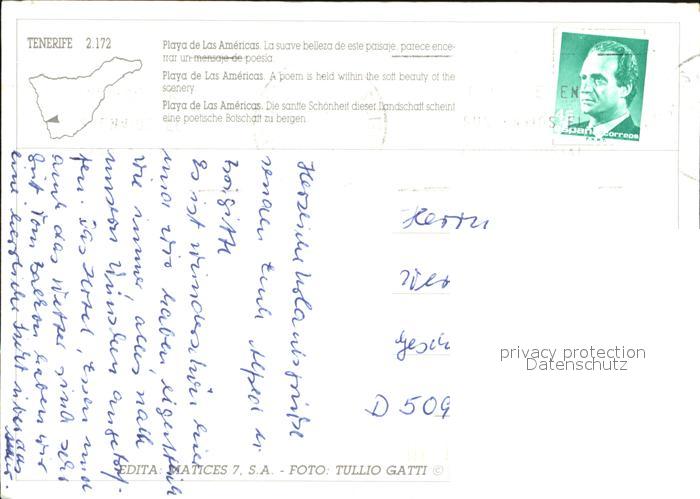 TENERIFE 2.172
Playa de Las Américas. La suave belleza de este paisaje, parece ence-
rrar un mensaje de poesía.
Playa de Las Américas. A poem is held within the soft beauty of the
scenery
Playa de Las Américas. Die sanfte Schönheit dieser Landschaft scheint
eine poetische Botschaft zu bergen.
España correos
Herzliche Urlaubsgrüße
senden Euch Alfred u.
Brigitte
Es ist wunderschön hier
und wir haben eigentlich
wie immer, alles nach
unseren Wünschen angetrof-
fen. Das Hotel, Essen und
auch das Wetter sind sehr
gut. Vom Balkon haben wir
eine herrliche Sicht über das
Meer.
Herrn
Wer
Gesch
D 509
privacy protection
Datenschutz
EDITA: MATICES 7, S.A. - FOTO: TULLIO GATTI ©